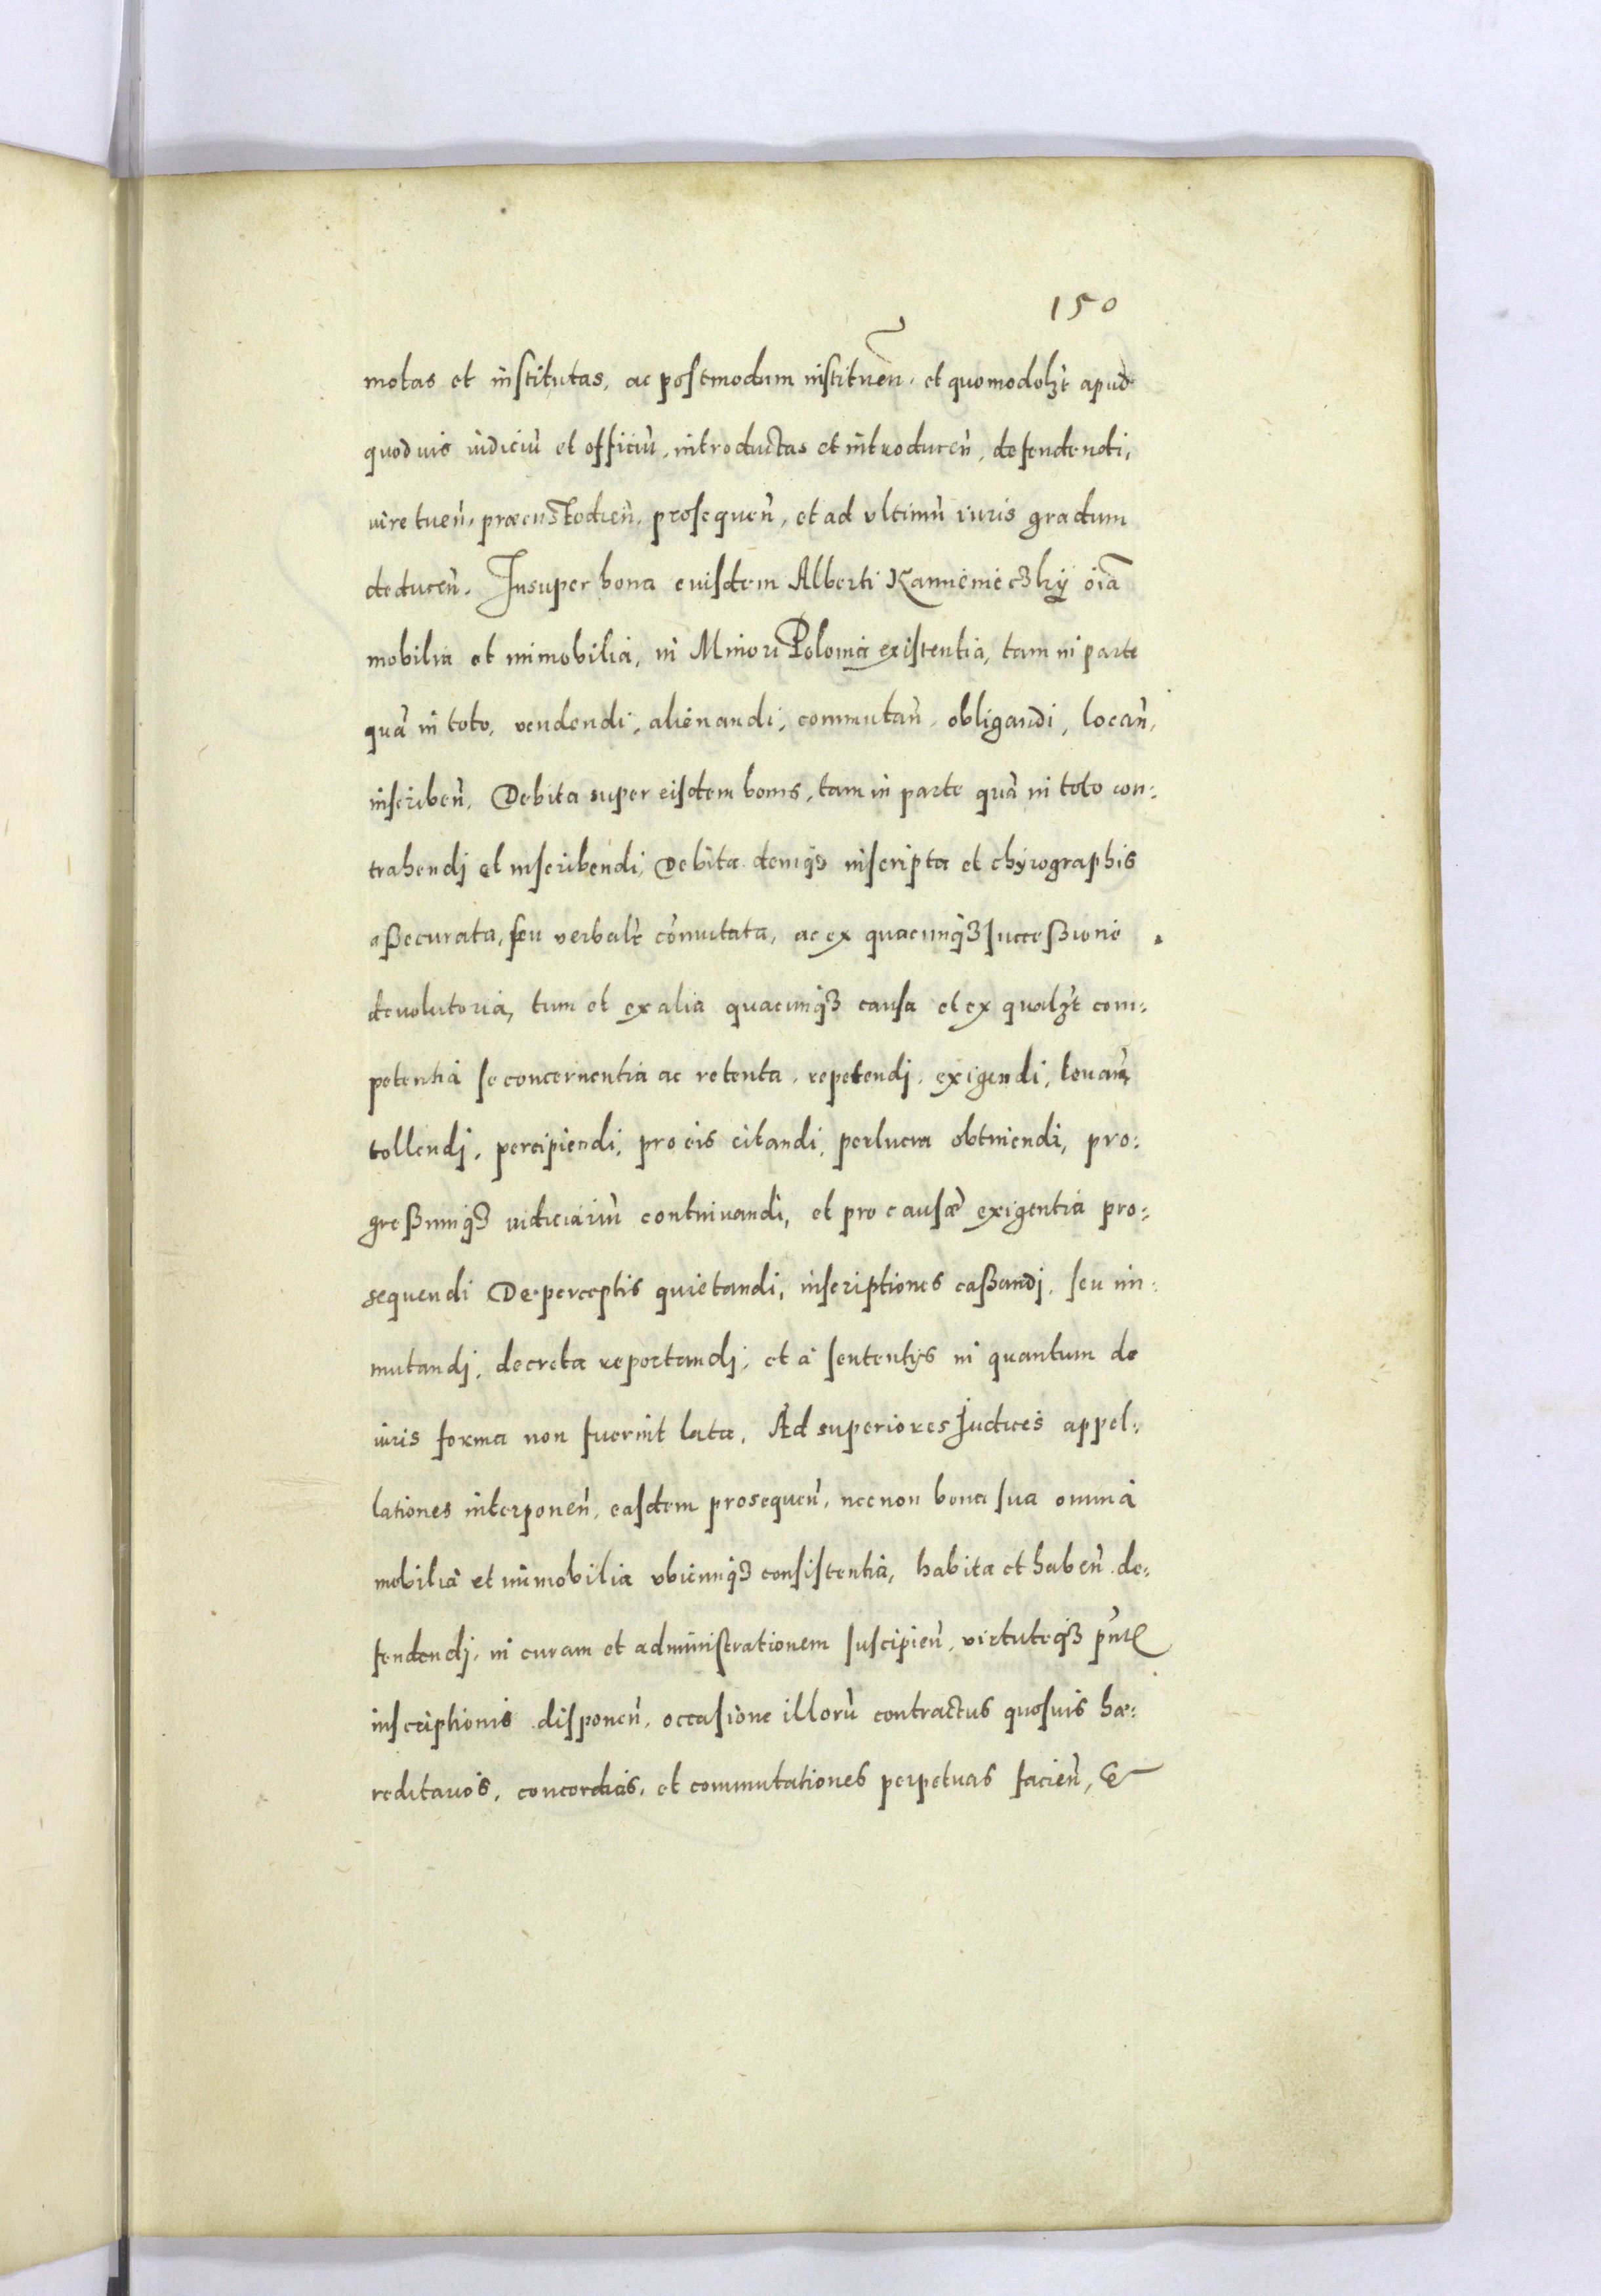 150
motas et institutas, ac postmodum instituen̄. et quomodolꝫt apud
quoduis iudiciū et officiū, introductas et introducen̄, defendendi,
iure tuen̄, præcustodien̄, prosequen̄, et ad vltimū iuris gradum
deducen̄. Insuper bona euisdem Alberti Kamienieczky oīa
mobilia et immobilia, in Minori Polonia existentia, tam in parte
quā in toto, vendendi, alienandi, commutan̄, obligandi, locan̄,
inscriben̄. Debita super eisdem bonis, tam in parte quā in toto con:
trahendj et inscribendi, Debita deniqꝫ inscripta et chyrographis
aßecurata, seu verbalr̄ cōmutata, ac ex quacunqꝫ succeßione
deuolutoria, tum et ex alia quacunqꝫ causa et ex qualꝫt com:
petentia se concernentia ac retenta, repetendj, exigendi, leuan̄,
tollendj, percipiendi, pro eis citandi, perlucra obtinendi, pro:
greßumqꝫ iudiciariū continuandi, et pro causæ exigentia pro:
sequendi De perceptis quietandi, inscriptiones caßandj, seu im:
mutandj, decreta reportandj, et à sententijs in quantum de
iuris forma non fuerint lata, Ad superiores Judices appel:
lationes interponen̄, easdem prosequen̄, necnon bona sua omnia
mobilia et immobilia vbicunqꝫ consistentia, habita et haben̄ de:
fendendj, in curam et administrationem suscipien̄, virtuteqꝫ pn̄tis
inscriptionis disponen̄, occasione illorū contractus quosuis hæ:
reditarios, concordias, et commutationes perpetuas facien̄, &